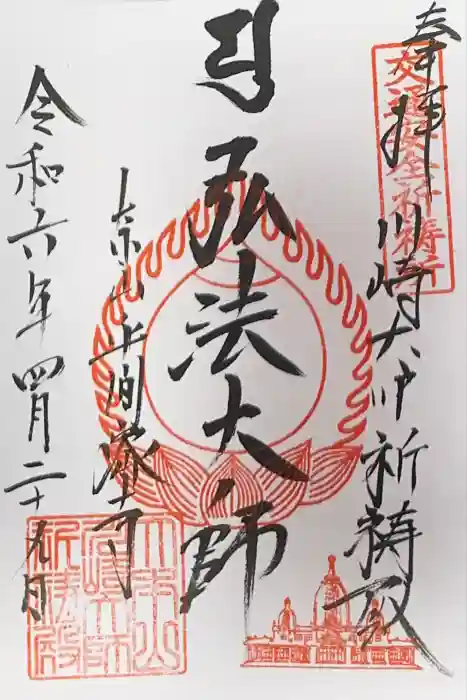 奉拝 川崎大師祈祷殿
交通安全祈祷所
弘法大師
大本山平間密寺
令和六年四月二十九日
大本山
川崎大師
祈祷殿